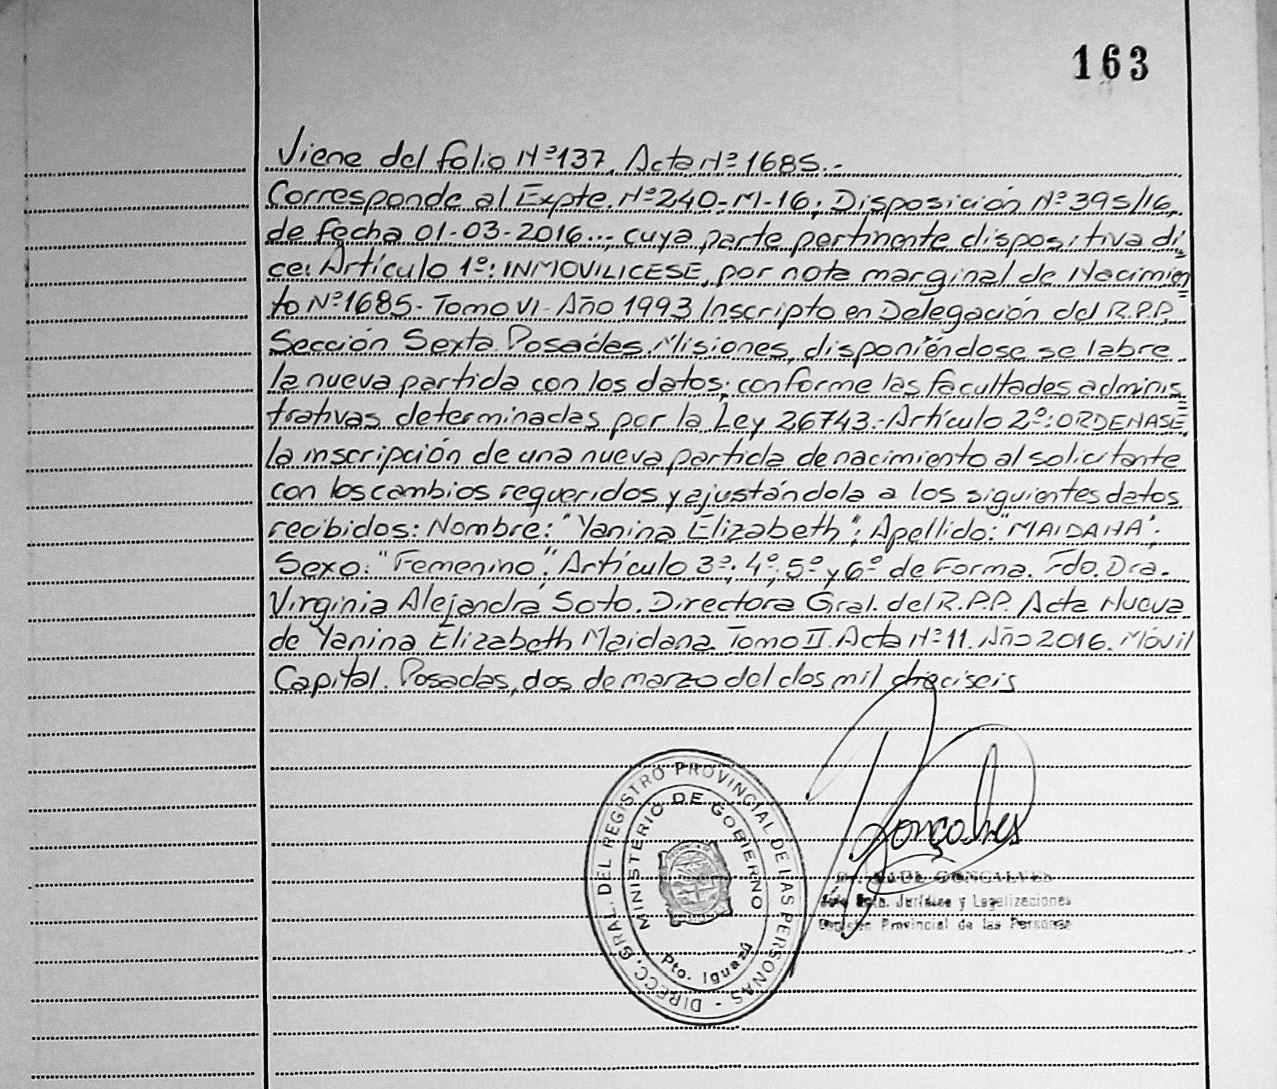 163
Viene del folio Nº137. Acta Nº 1685.-
Corresponde al Expte. Nº240-M-16; Disposición Nº 395/16,
de fecha 01-03-2016..., cuya parte pertinente dispositiva di,
ce: Artículo 1º: INMOVILICESE, por nota marginal de Nacimien
to Nº1685- Tomo VI- Año 1993 Inscripto en Delegación del R.P.P.
Sección Sexta Posadas. Misiones, disponiéndose se labre
la nueva partida con los datos; conforme las facultades adminis
trativas determinadas por la Ley 26743.-Artículo 2º: ORDENASE,
la inscripción de una nueva partida de nacimiento al solicitante
con los cambios requeridos y ajustándola a los siguientes datos
recibidos: Nombre: "Yanina Elizabeth"; Apellido: "MAIDANA";
Sexo: "Femenino". Artículo 3º; 4º, 5º y 6º de Forma. Fdo. Dra.
Virginia Alejandra Soto. Directora Gral. del R.P.P. Acta Nueva
de Yanina Elizabeth Maidana. Tomo II. Acta Nº 11. Año 2016. Móvil
Capital. Posadas, dos de marzo del dos mil dieciseis
DIRECC. GRAL. DEL REGISTRO PROVINCIAL DE LAS PERSONAS -
MINISTERIO DE GOBIERNO
Pto. Iguazú
Gonçalves
GONCALVES
Jurídico y Legalizaciones
Registro Provincial de las Personas